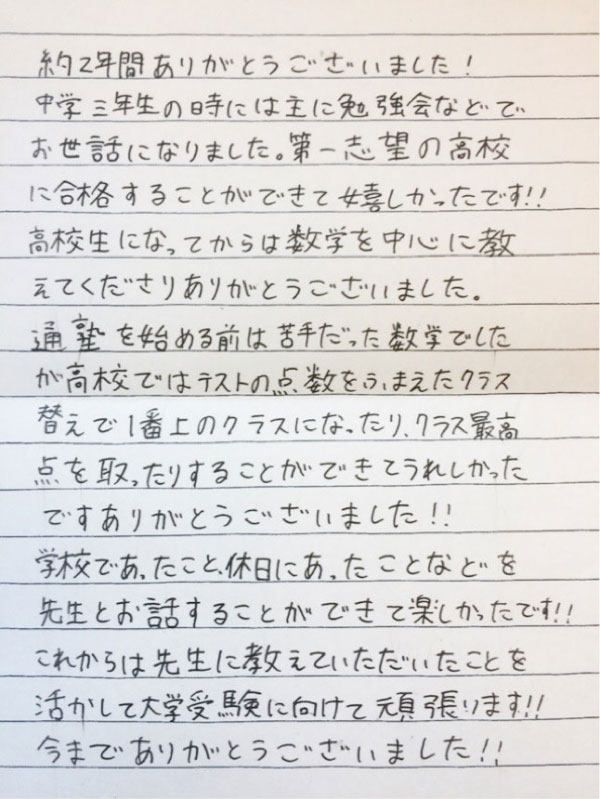 約2年間ありがとうございました!
中学三年生の時には主に勉強会などで
お世話になりました。第一志望の高校
に合格することができて嬉しかったです!!
高校生になってからは数学を中心に教
えてくださりありがとうございました。
通塾を始める前は苦手だった数学でした
が高校ではテストの点数をふまえたクラス
替えで1番上のクラスになったり、クラス最高
点を取ったりすることができてうれしかった
ですありがとうございました!!
学校であったこと、休日にあったことなどを
先生とお話することができて楽しかったです!!
これからは先生に教えていただいたことを
活かして大学受験に向けて頑張ります!!
今までありがとうございました!!